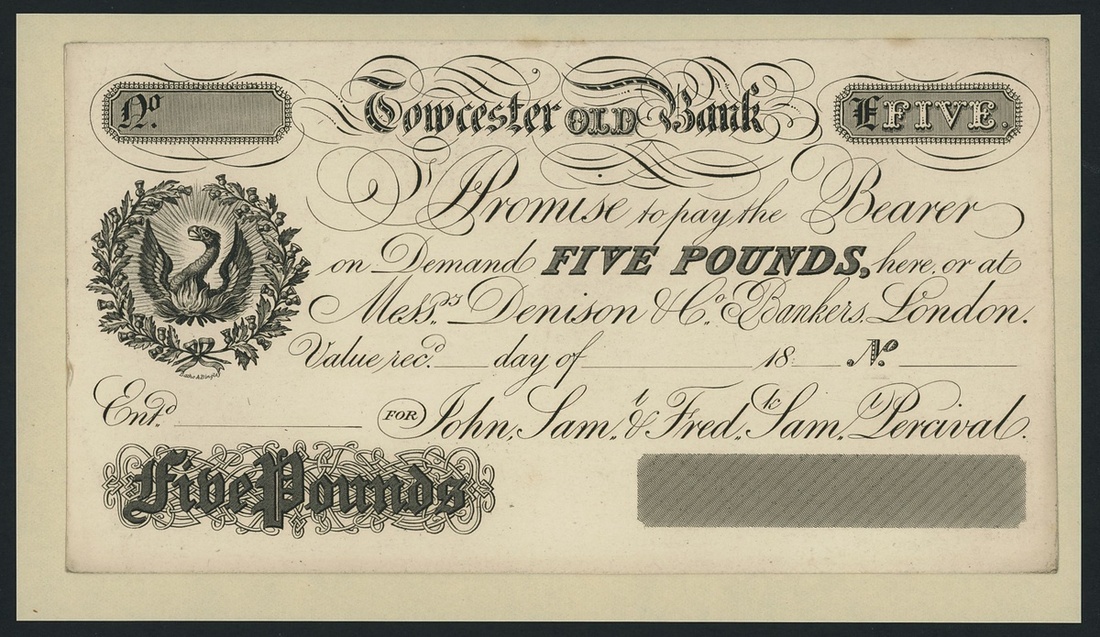 No. Towcester OLD Bank £FIVE.
I Promise to pay the Bearer
on Demand FIVE POUNDS, here, or at
Mess.rs Denison & Co. Bankers. London.
Value rec.d day of 18 No.
Ent.d FOR John, Sam.l & Fred.k Sam.l Percival.
Five Pounds